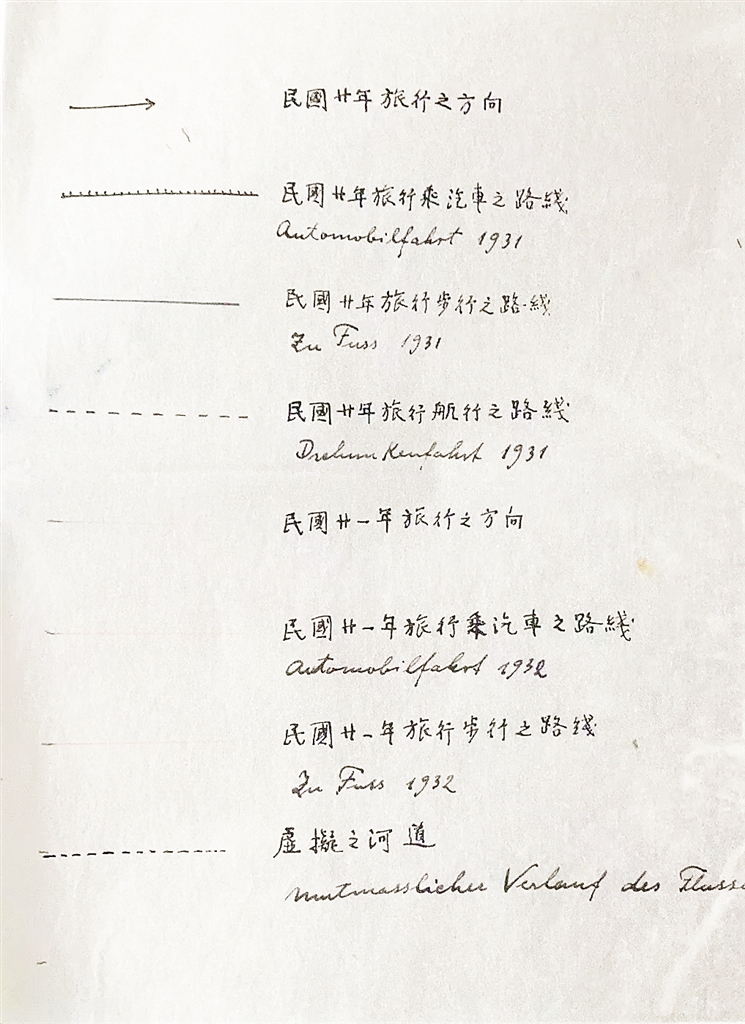 民國廿年旅行之方向
民國廿年旅行乘汽車之路綫
Automobilfahrt 1931
民國廿年旅行步行之路綫
Zu Fuss 1931
民國廿年旅行航行之路綫
Dschunkenfahrt 1931
民國廿一年旅行之方向
民國廿一年旅行乘汽車之路綫
Automobilfahrt 1932
民國廿一年旅行步行之路綫
Zu Fuss 1932
虛擬之河道
mutmasslicher Verlauf des